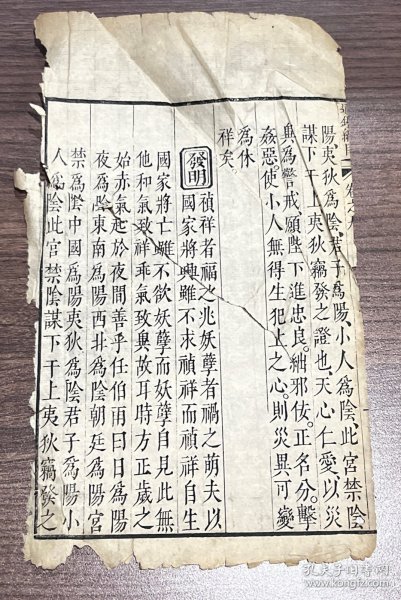 陽夷狄為陰君子為陽小人為陰此宮禁陰
謀下干上夷狄竊發之證也天心仁愛以災
異為警戒願陛下進忠良。絀邪佞。正名分。擊
姦惡使小人無得生犯上之心。則災異可變
為休
祥矣。
發明
禎祥者福之兆妖孽者禍之萌夫以
國家將興雖不求禎祥而禎祥自生
國家將亡雖不欲妖孽而妖孽自見此無
他和氣致祥乖氣致異故耳時方正歲之
始赤氣起於夜間善乎任伯雨曰日為陽
夜為陰東南為陽西北為陰朝廷為陽宮
禁為陰中國為陽夷狄為陰君子為陽小
人為陰此宮禁陰謀下干上夷狄竊發之
孔夫子旧书网
www.kongfz.com